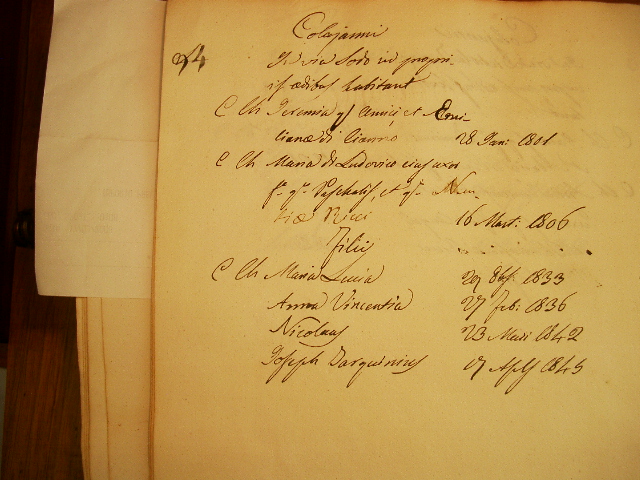 Colajanni
34
In via Sodo in propri-
is ædibus habitant
C Ch Jeremia qm Amici, et Emi-
lianæ di Cianno 28 Jan: 1801
C Ch Maria di Ludovico ejus uxor
fa. qm. Paschalis, et qm. Nun-
tiæ Ricci 16 Mart: 1806
Filii
C Ch Maria Lucia 29 8bf: 1833
Anna Vincentia 27 Feb: 1836
Nicolaus 23 Maii 1842
Joseph Tarquinius 17 Aplis 1845